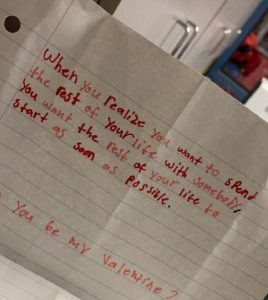 When you realize you want to spend
the rest of your life with somebody,
You want the rest of your life to
start as soon as possible.
You be my Valentine?